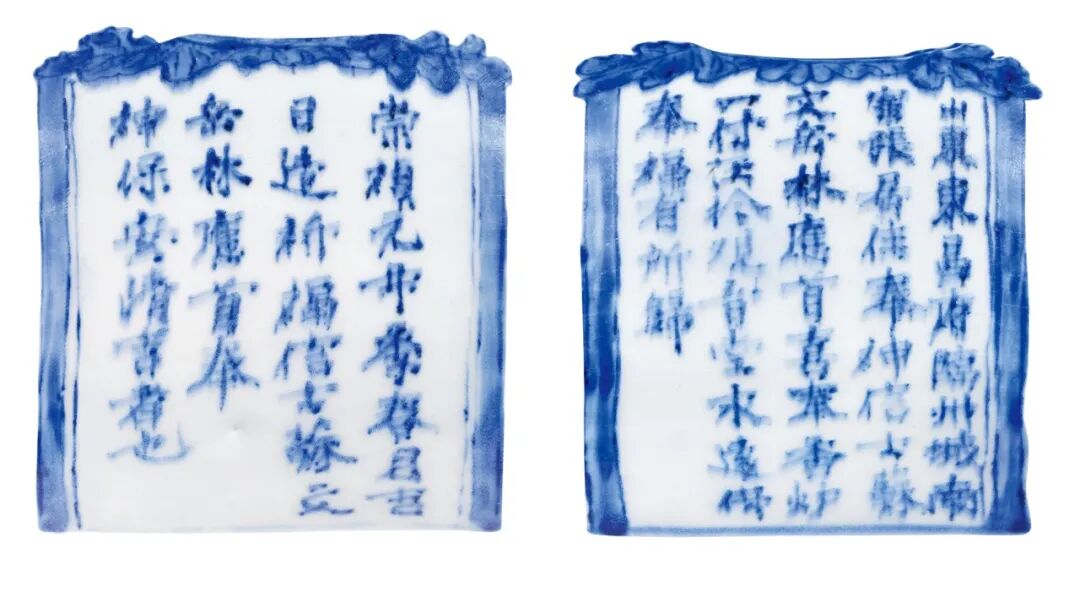 山東東昌府臨州城南
張居住奉神信士蘇
文船林應首喜奉香炉
一付於觀音堂永遠供
奉福有所歸
崇禎元年季春月吉
日造祈福信士蘇文
船林應首奉
神保安清吉者也